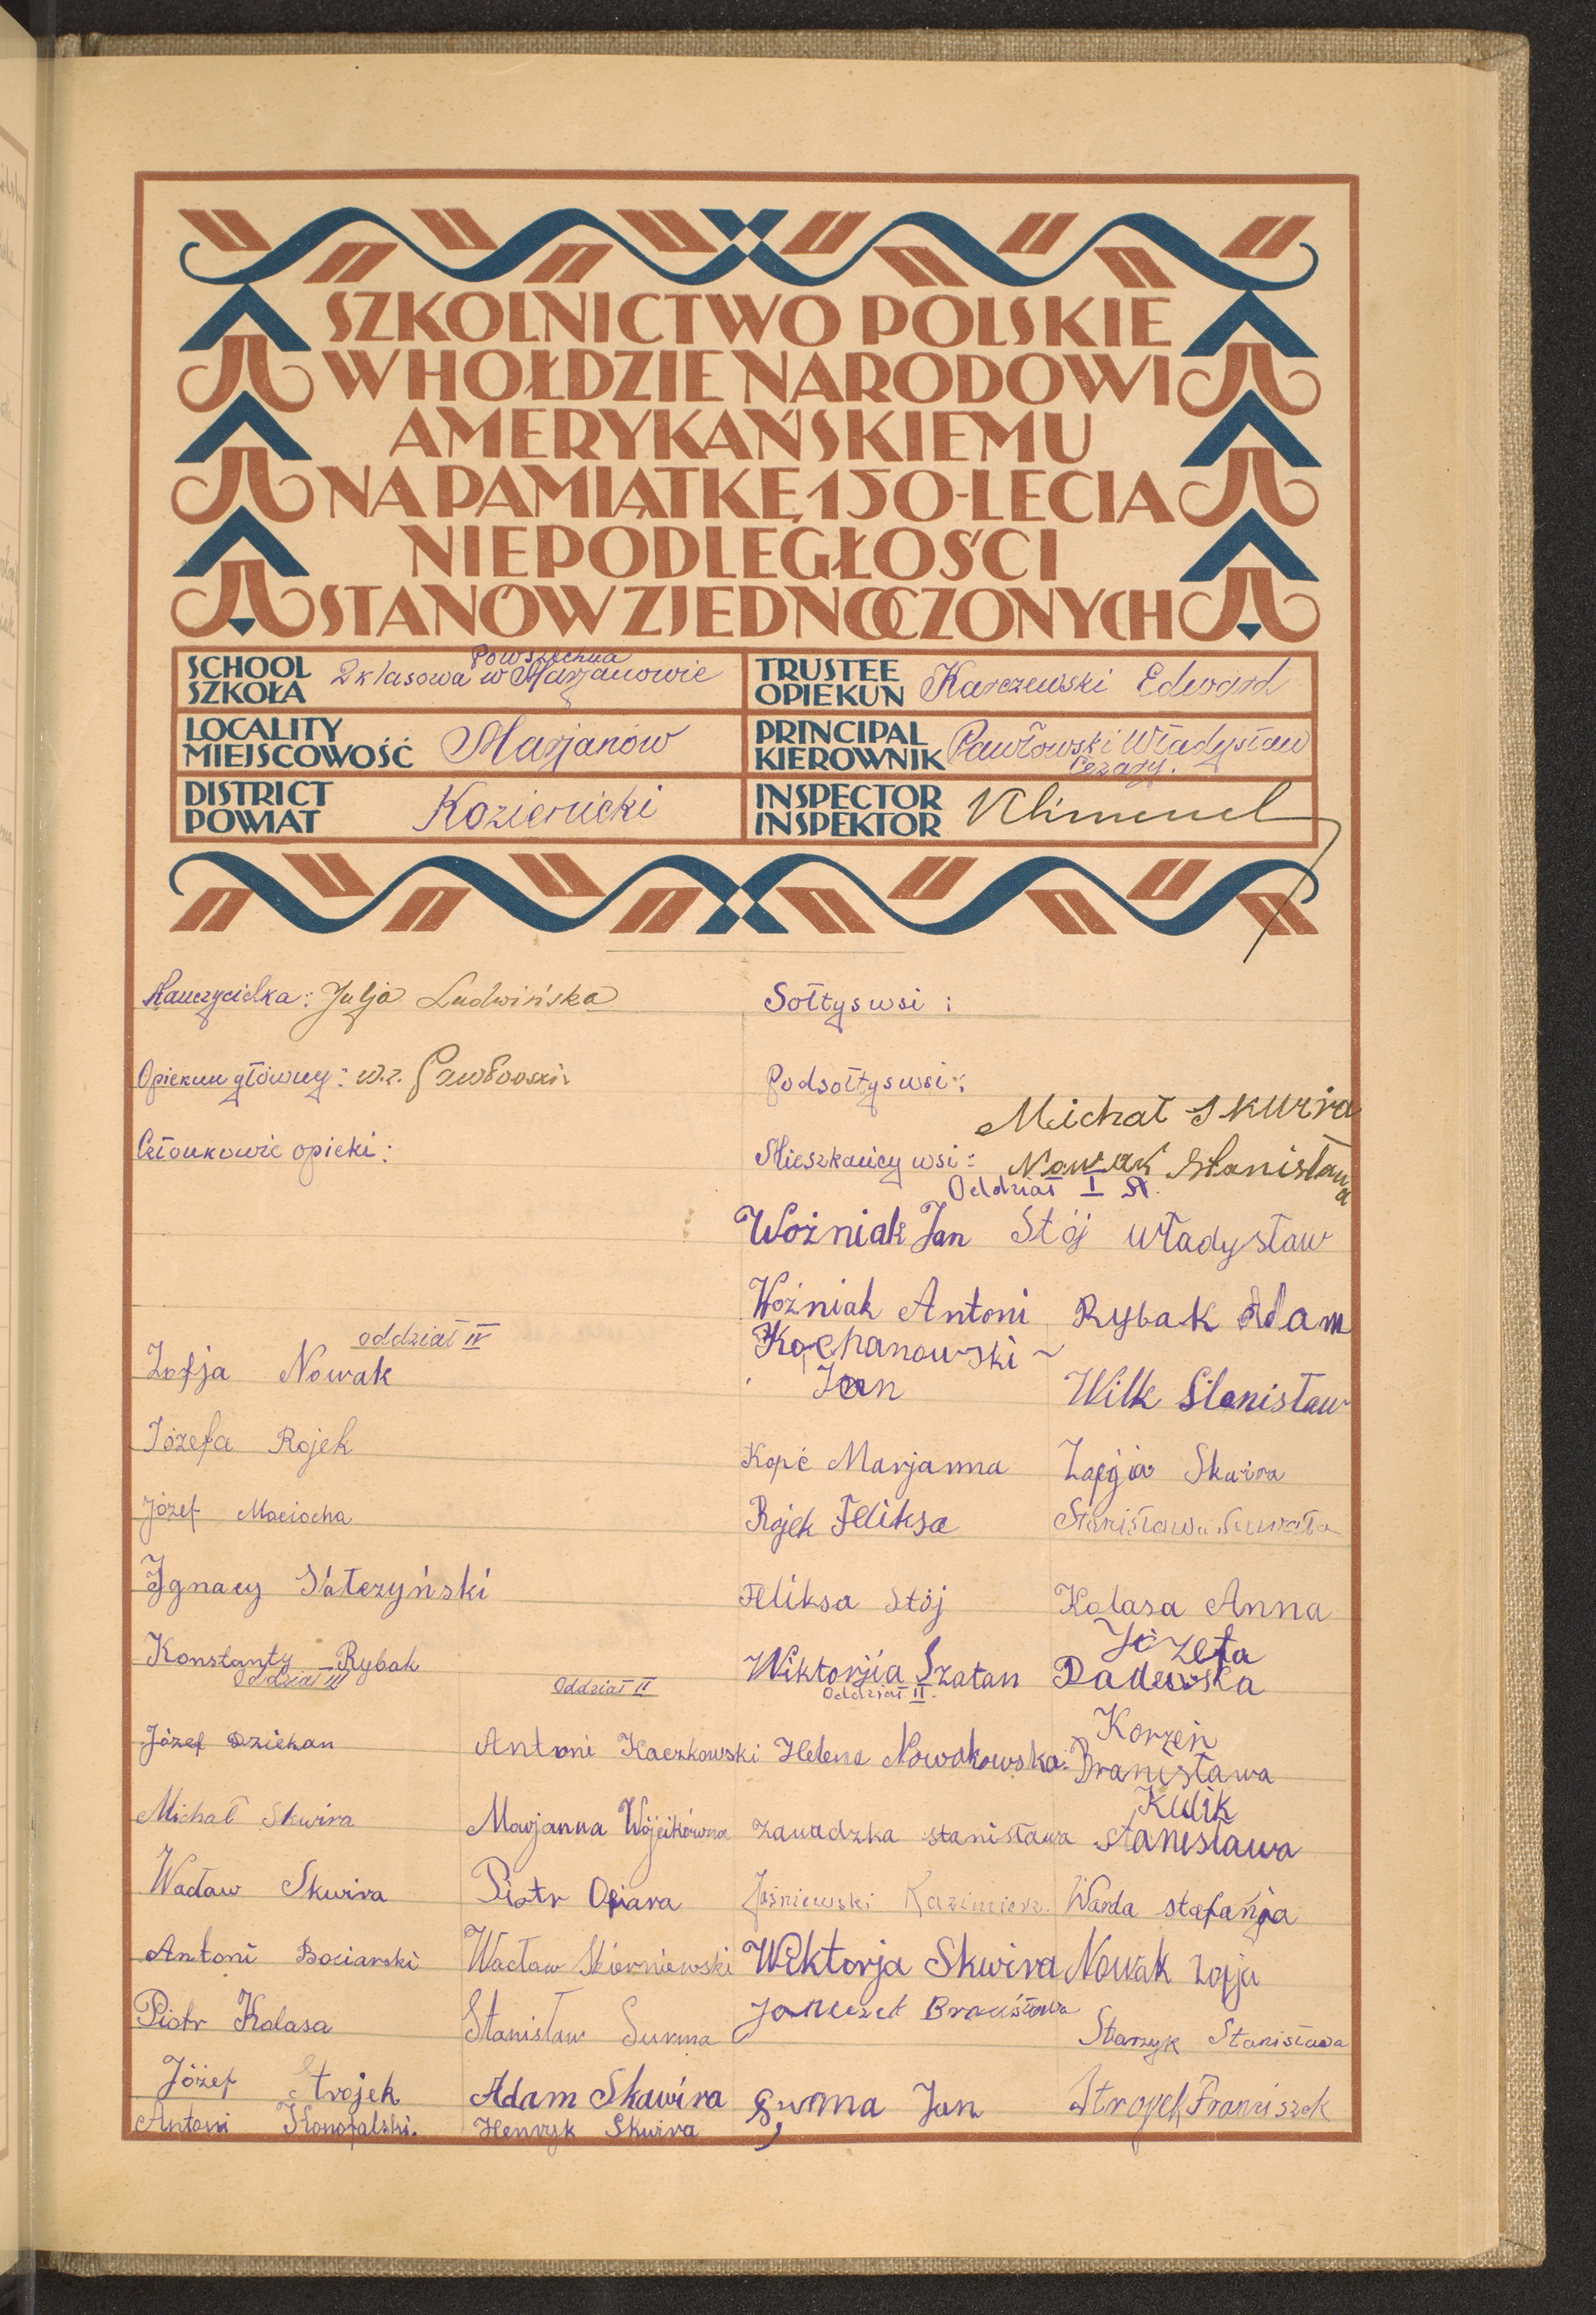 SZKOLNICTWO POLSKIE
W HOŁDZIE NARODOWI
AMERYKAŃSKIEMU
NA PAMIĄTKĘ 150-LECIA
NIEPODLEGŁOŚCI
STANÓW ZJEDNOCZONYCH
SCHOOL
SZKOŁA
Powszechna
2 klasowa w Marjanowie
TRUSTEE
OPIEKUN
Karczewski Edward
LOCALITY
MIEJSCOWOŚĆ
Marjanów
PRINCIPAL
KIEROWNIK
Pawłowski Władysław
Cezary.
DISTRICT
POWIAT
Kozienicki
INSPECTOR
INSPEKTOR
Nauczycielka: Julja Ludwińska
Sołtys wsi:
Opiekun główny: w.z. Pawłowski
Podsołtys wsi:
Michał Skwira
Członkowie opieki:
Mieszkańcy wsi: Nowak Stanisława
Oddział I
Woźniak Jan Stój Władysław
Woźniak Antoni Rybak Adam
oddział IV
Kochanowski
Zofja Nowak
Jan
Wilk Stanisław
Józefa Rojek
Kopć Marjanna Zofja Skwira
Józef Maciocha
Rojek Feliksa Stanisława
Ignacy
Feliksa Stój Kolasa Anna
Konstanty Rybak
Wiktorja Szatan
Józefa
Dadewska
Oddział III
Oddział II
Oddział II.
Józef Dziekan
Antoni Kaczkowski Helena Nowakowska
Korzeń
Bronisława
Michał Skwira
Marjanna Wójcikówna Zawadzka Stanisława
Kulik
Stanisława
Wacław Skwira
Piotr Ofiara
Jaśniewski Kazimierz. Warda Stefanja
Antoni Bociarski
Wacław Skierniewski Wiktorja Skwira Nowak Zofja
Piotr Kolasa
Stanisław Surma
Bronisława
Starzyk Stanisława
Józef Strojek
Adam Skawira Surma Jan Strojek Franciszek
Antoni Konopalski.
Henryk Skwira